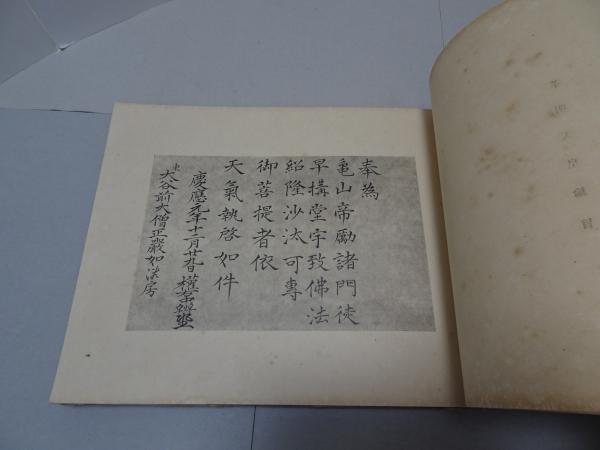 奉為
亀山帝勵諸門徒
早搆堂宇致佛法
紹隆沙汰可專
御菩提者依
天氣執啓如件
慶應元年十二月廿九日 權右中辨
東大谷前大僧正嚴如法房